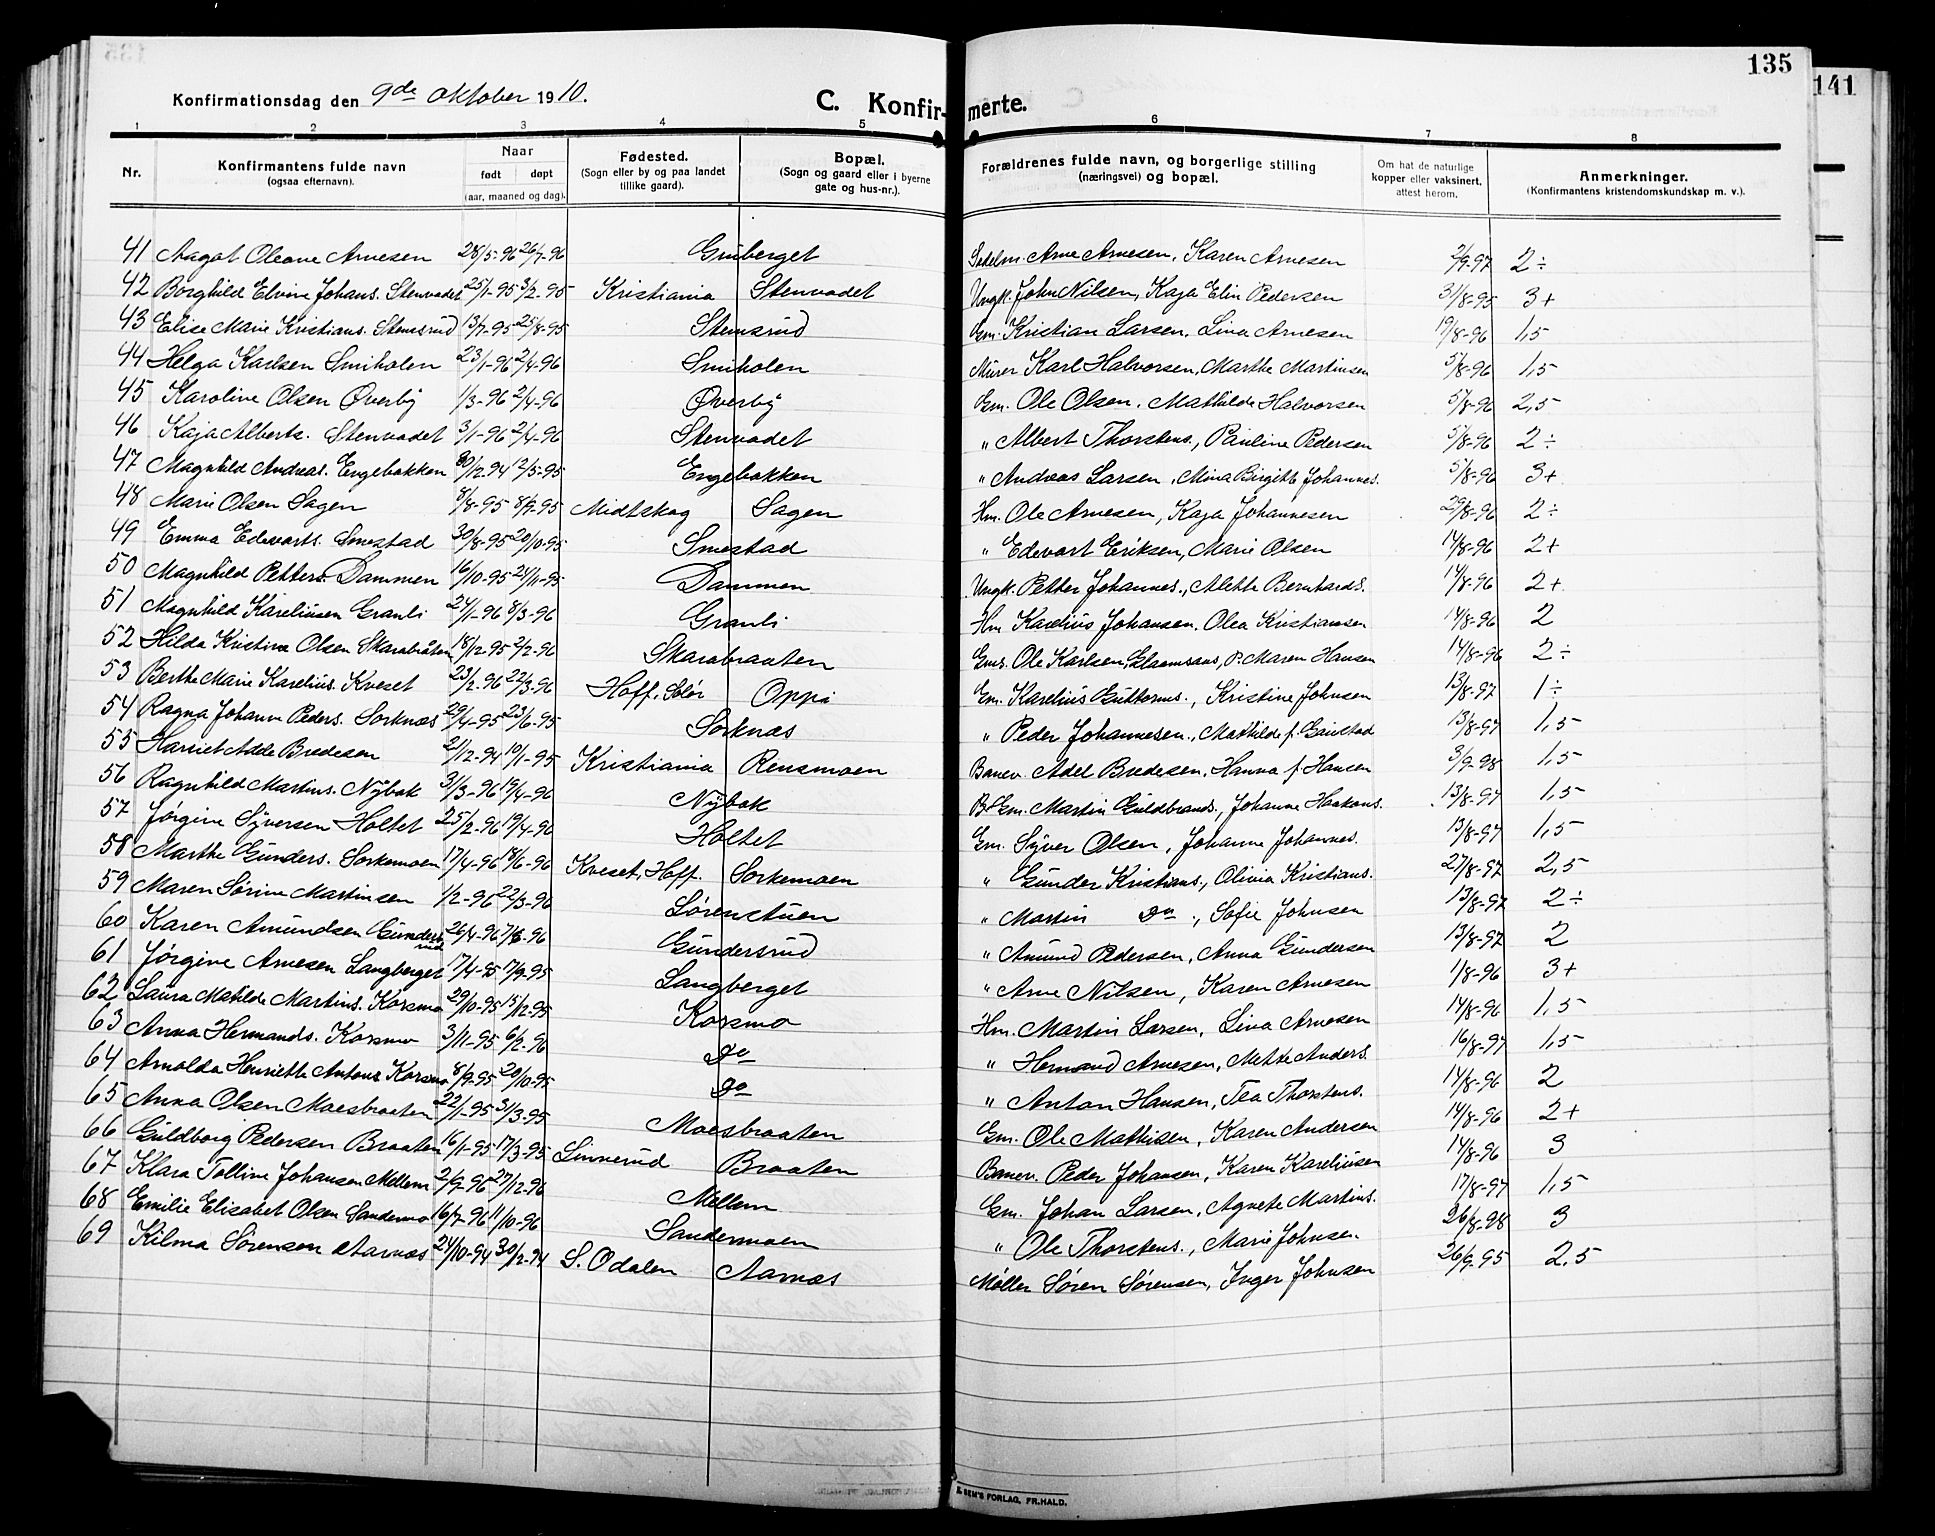 135
141
Konfirmationsdag den 9de oktober 1910.
C. Konfir-merte.
1 2 3 4 5 6 7 8
Nr. Konfirmantens fulde navn (ogsaa efternavn). Naar født døpt (aar, maaned og dag). Fødested. (Sogn eller by og paa landet tillike gaard). Bopæl. (Sogn og gaard eller i byerne gate og hus-nr.). Forældrenes fulde navn, og borgerlige stilling (næringsvei) og bopæl. Om hat de naturlige kopper eller vaksinert, attest herom. Anmerkninger. (Konfirmantens kristendomskundskap m. v.).
41 Aagot Oleane Arnesen 28/5-96 26/7-96 Gruberget Sadelm. Arne Arnesen, Karen Arnesen 2/9-97 2÷
42 Borghild Elvine Johans. Stenvadet 25/1-95 3/2-95 Kristiania Stenvadet Ungk. John Nilsen, Kaja Elin Pedersen 31/8-95 3+
43 Elise Marie Kristians. Stemsrud 13/7-95 25/8-95 Stemsrud Gm. Kristian Larsen, Lina Arnesen 19/8-96 1,5
44 Helga Karlsen Smiholen 23/1-96 2/4-96 Smiholen Murer Karl Halvorsen, Marthe Martinsen 5/8-96 1,5
45 Karoline Olsen Øverby 1/3-96 2/4-96 Øverby Gm. Ole Olsen, Mathilde Halvorsen 5/8-96 2,5
46 Kaja Alberts. Stenvadet 3/1-96 2/4-96 Stenvadet " Albert Thorstens., Pauline Pedersen 5/8-96 2÷
47 Magnhild Andreas. Engebakken 30/12-94 12/5-95 Engebakken " Andreas Larsen, Mina Birgitte Johannes. 5/8-96 3+
48 Marie Olsen Sagen 8/8-95 8/9-95 Midtskog Sagen Hm. Ole Arnesen, Kaja Johannesen 29/8-96 2÷
49 Emma Edevarts. Smestad 30/8-95 20/10-95 Smestad " Edevart Eriksen, Marie Olsen 14/8-96 2+
50 Magnhild Petters. Dammen 16/10-95 21/11-95 Dammen Ungk. Petter Johannes., Alethe Bernhards. 14/8-96 2+
51 Magnhild Kareliusen Granli 24/1-96 8/3-96 Granli Hm Karelius Johansen, Olea Kristiansen 14/8-96 2
52 Hilda Kristine Olsen Skarabråten 18/12-95 2/2-96 Skarabraaten Gms. Ole Karlsen, Glaamsaas, P. Maren Hansen 14/8-96 2÷
53 Berthe Marie Karelius. Kveset 23/2-96 22/3-96 Hoff, Solør Oppi Gm. Karelius Guttorms., Kristine Johnsen 13/8-97 1÷
54 Ragna Johanne Peders. Sorknæs 29/4-95 23/6-95 Sorknæs " Peder Johannesen., Mathilde f. Gaustad 13/8-97 1,5
55 Harriet Adde Bredesen 21/12-94 10/1-95 Kristiania Rensmoen Banev. Adel Bredesen, Hanna f. Hansen 3/9-98 1,5
56 Ragnhild Martins. Nybak 31/3-96 19/4-96 Nybak B Gm. Martin Guldbrands., Johanne Haakons. 13/8-97 1,5
57 Jørgine Syversen Holtet 25/2-96 19/4-96 Holtet Gm. Syver Olsen, Johanne Johannes. 13/8-97 1,5
58 Marthe Gunders. Sorkemoen 17/4-96 18/6-96 Kveset, Hoff. Sorkemoen " Gunder Kristians., Olivia Kristians. 27/8-97 2,5
59 Maren Sørine Martinsen 1/2-96 22/3-96 Sørenstuen " Martin Do., Sofie Johnsen 13/8-97 2÷
60 Karen Amundsen Gundersrud 26/4-96 7/6-96 Gundersrud " Amund Pedersen, Anna Gundersen 13/8-97 2
61 Jørgine Arnesen Langberget 17/4-95 17/9-95 Langberget " Arne Nilsen, Karen Arnesen 1/8-96 3+
62 Laura Matilde Martins. Korsmo 29/10-95 15/12-95 Korsmo Hm. Martin Larsen, Lina Arnesen 14/8-96 1,5
63 Anna Hermands. Korsmo 3/11-95 6/2-96 Do " Hermand Arnesen, Mette Anders. 16/8-97 1,5
64 Arnolda Henriette Antons Korsmo 8/9-95 20/10-95 Do " Anton Hansen, Tea Thorstens. 14/8-96 2
65 Anna Olsen Moesbraaten 22/1-95 31/3-95 Moesbraaten Gm. Ole Mathisen, Karen Andersen 14/8-96 2+
66 Guldborg Pedersen Braaten 16/1-95 17/3-95 Linnerud Braaten Banev. Peder Johansen, Karen Kareliusen 14/8-96 3
67 Klara Tolline Johansen Mellem 2/9-96 27/12-96 Mellem Gm. Johan Larsen, Agnete Martins. 17/8-97 1,5
68 Emilie Elisabet Olsen Sandermo 16/7-96 11/10-96 Sandermoen " Ole Thorstens., Marie Johnsen. 26/8-98 3
69 Kilma Sørensen Aarnæs 24/10-94 30/12-94 S. Odalen Aarnæs Møller Søren Sørensen, Inger Johnsen 26/9-95 2,5
SEM'S FORLAG, FR.HALD.